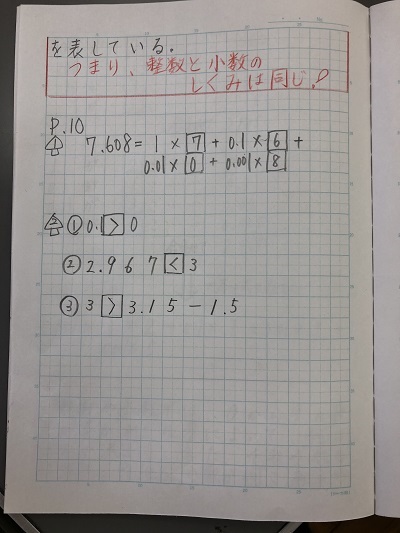 を表している。
つまり、整数と小数の
しくみは同じ!
P.10
7.608 = 1 × 7 + 0.1 × 6 +
0.01 × 0 + 0.001 × 8
① 0.1 > 0
② 2.967 < 3
③ 3 > 3.15 - 1.5